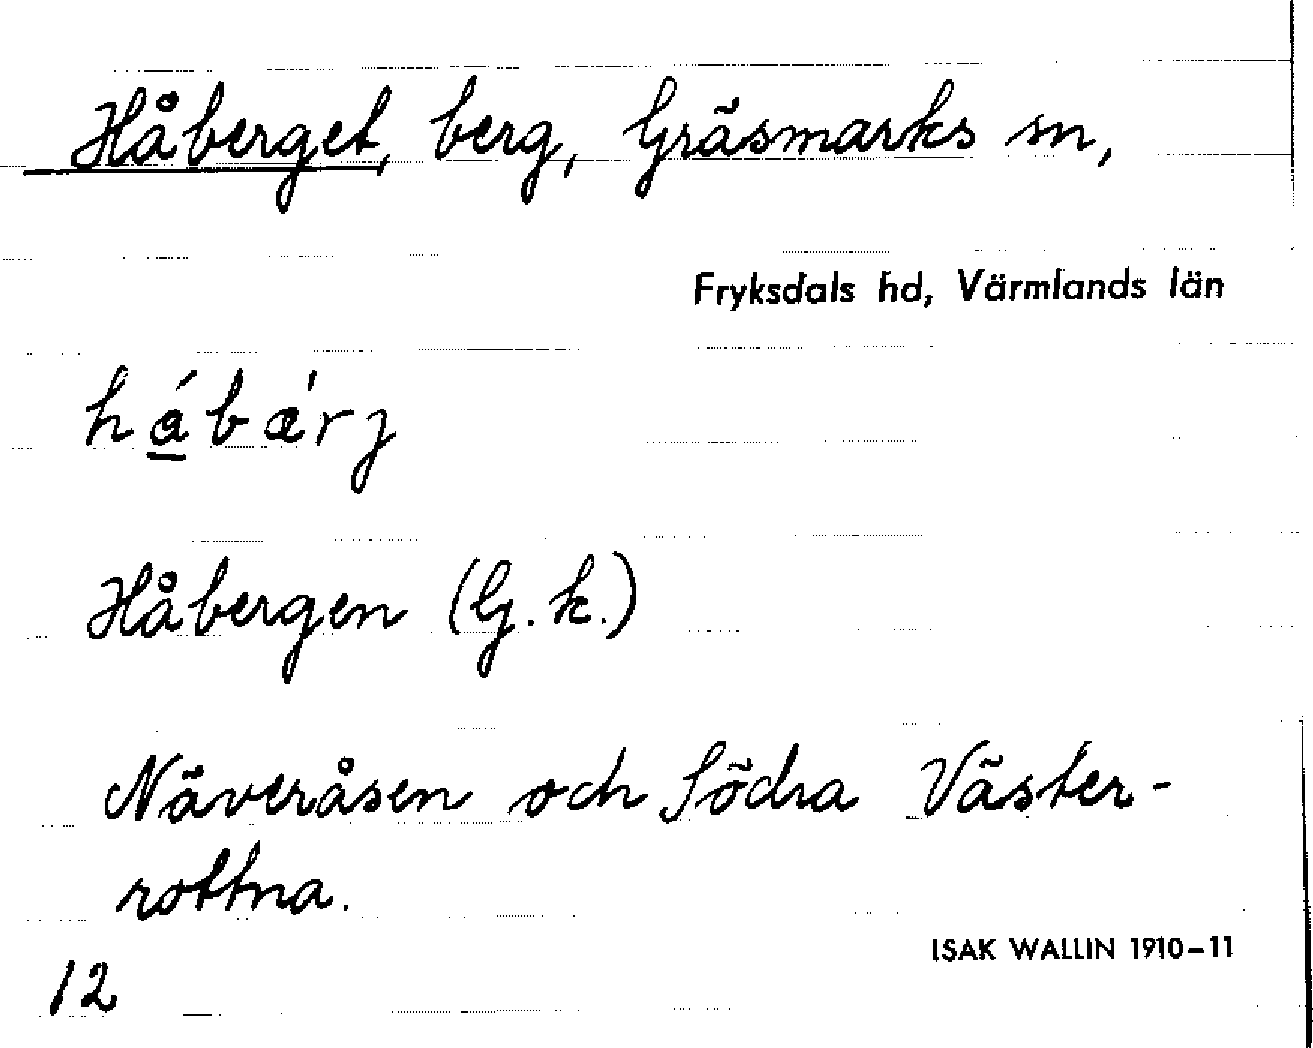 Håberget, berg, Gräsmarks sn,
Fryksdals hd, Värmlands län
Håbergen (G. k.)
Näveråsen och Södra Väster-
rottna.
ISAK WALLIN 1910-11
12